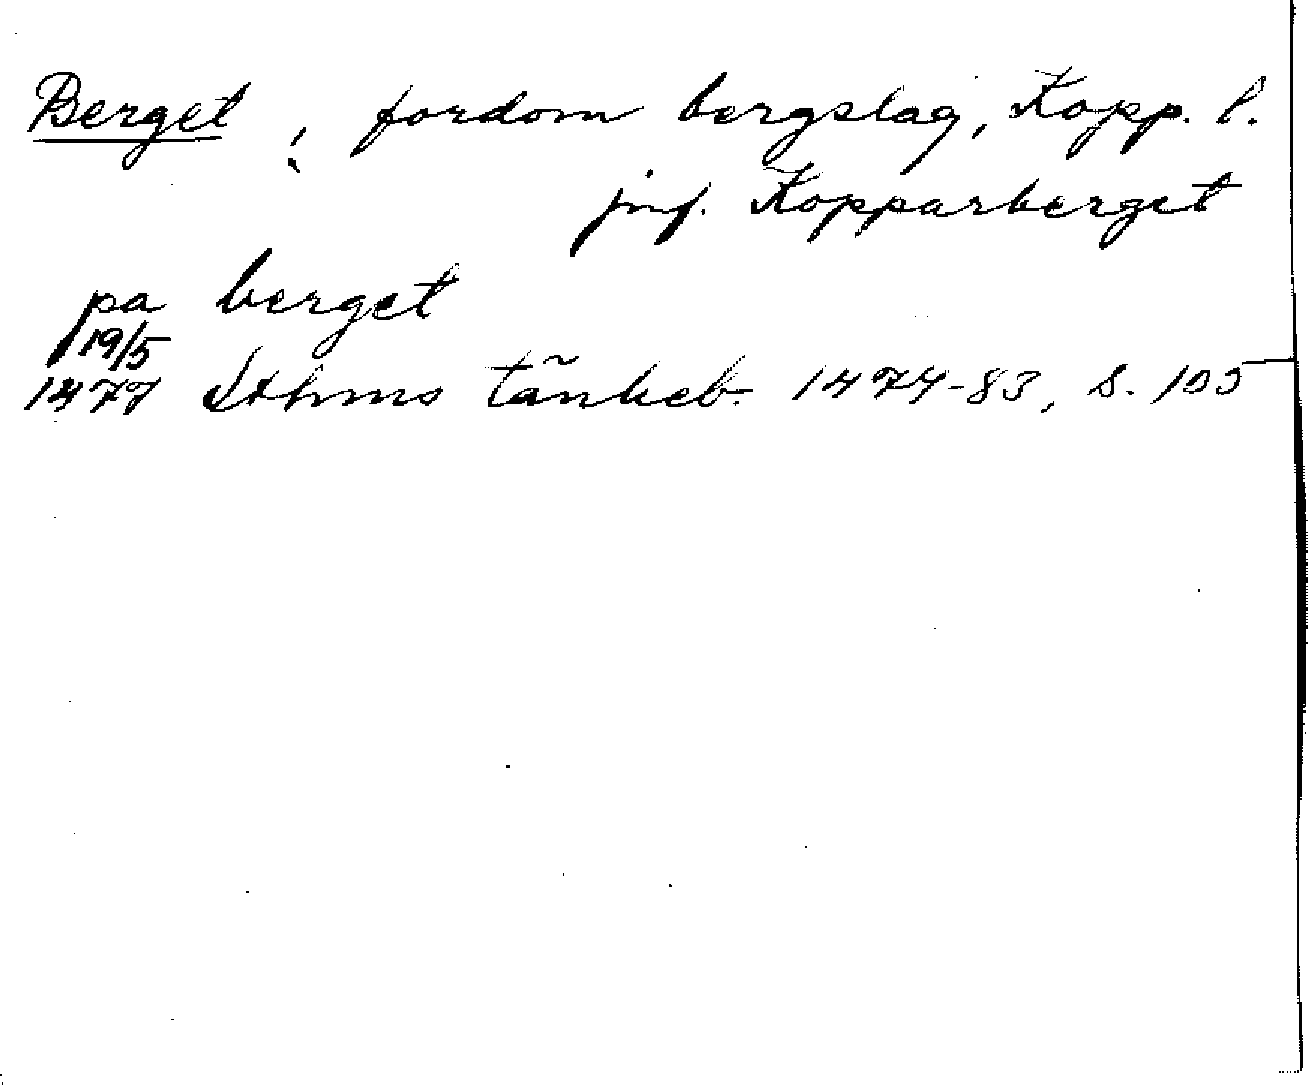 Berget, fordom bergslag, Kopp. l.
jmf. Kopparberget
pa berget
19/5
1477 Sthms tänkeb. 1474-83, s. 105